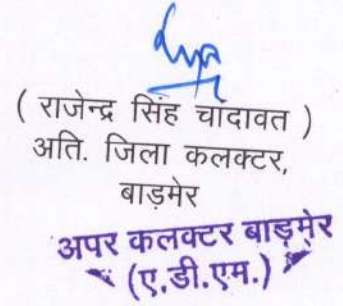 ( राजेन्द्र सिंह चांदावत )
अति. जिला कलक्टर,
बाड़मेर
अपर कलक्टर बाड़मेर
(ए.डी.एम.)